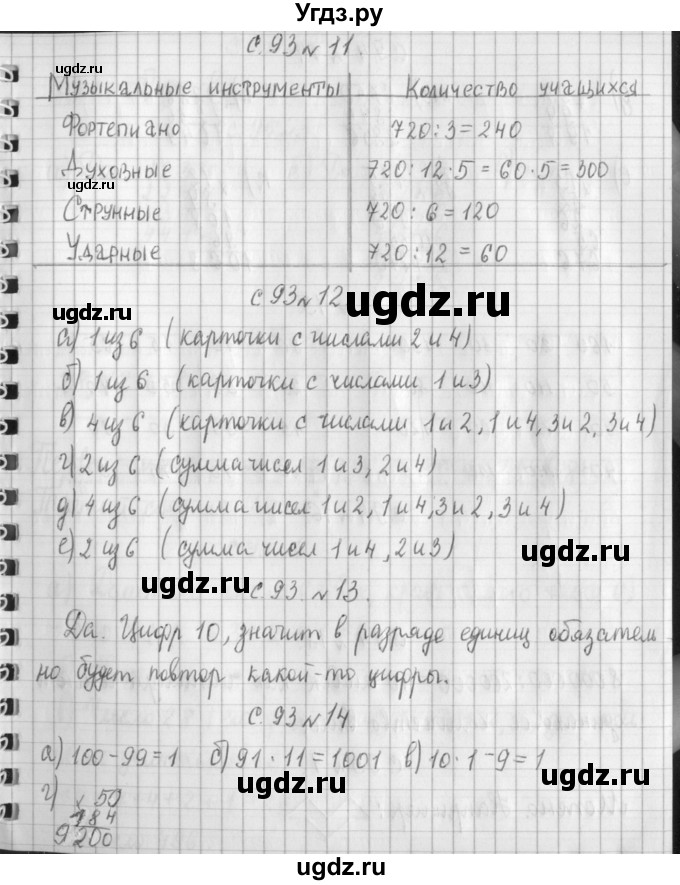 Угдз.ру
с. 93 № 11.
ugdz.ru ugdz.ru
Музыкальные инструменты Количество учащихся
Фортепиано 720:3=240
Духовные 720:12·5=60·5=300
ugdz.ru
Струнные 720:6=120
Ударные 720:12=60
с. 93 № 12
ugdz.ru ugdz.ru
а) 1 из 6 (карточки с числами 2 и 4)
б) 1 из 6 (карточки с числами 1 и 3)
в) 4 из 6 (карточки с числами 1 и 2, 1 и 4, 3 и 2, 3 и 4)
г) 2 из 6 (сумма чисел 1 и 3, 2 и 4) ugdz.ru
д) 4 из 6 (сумма чисел 1 и 2, 1 и 4, 3 и 2, 3 и 4)
е) 2 из 6 (сумма чисел 1 и 4, 2 и 3) ugdz.ru
ugdz.ru с. 93. № 13.
Да. Цифр 10, значит в разряде единиц обязатель
но будет повтор какой-то цифры.
ugdz.ru
с. 93 № 14
а) 100-99=1 б) 91·11=1001 в) 10·1-9=1
ugdz.ru ugdz.ru
г) × 50
184
9200
ugdz.ru